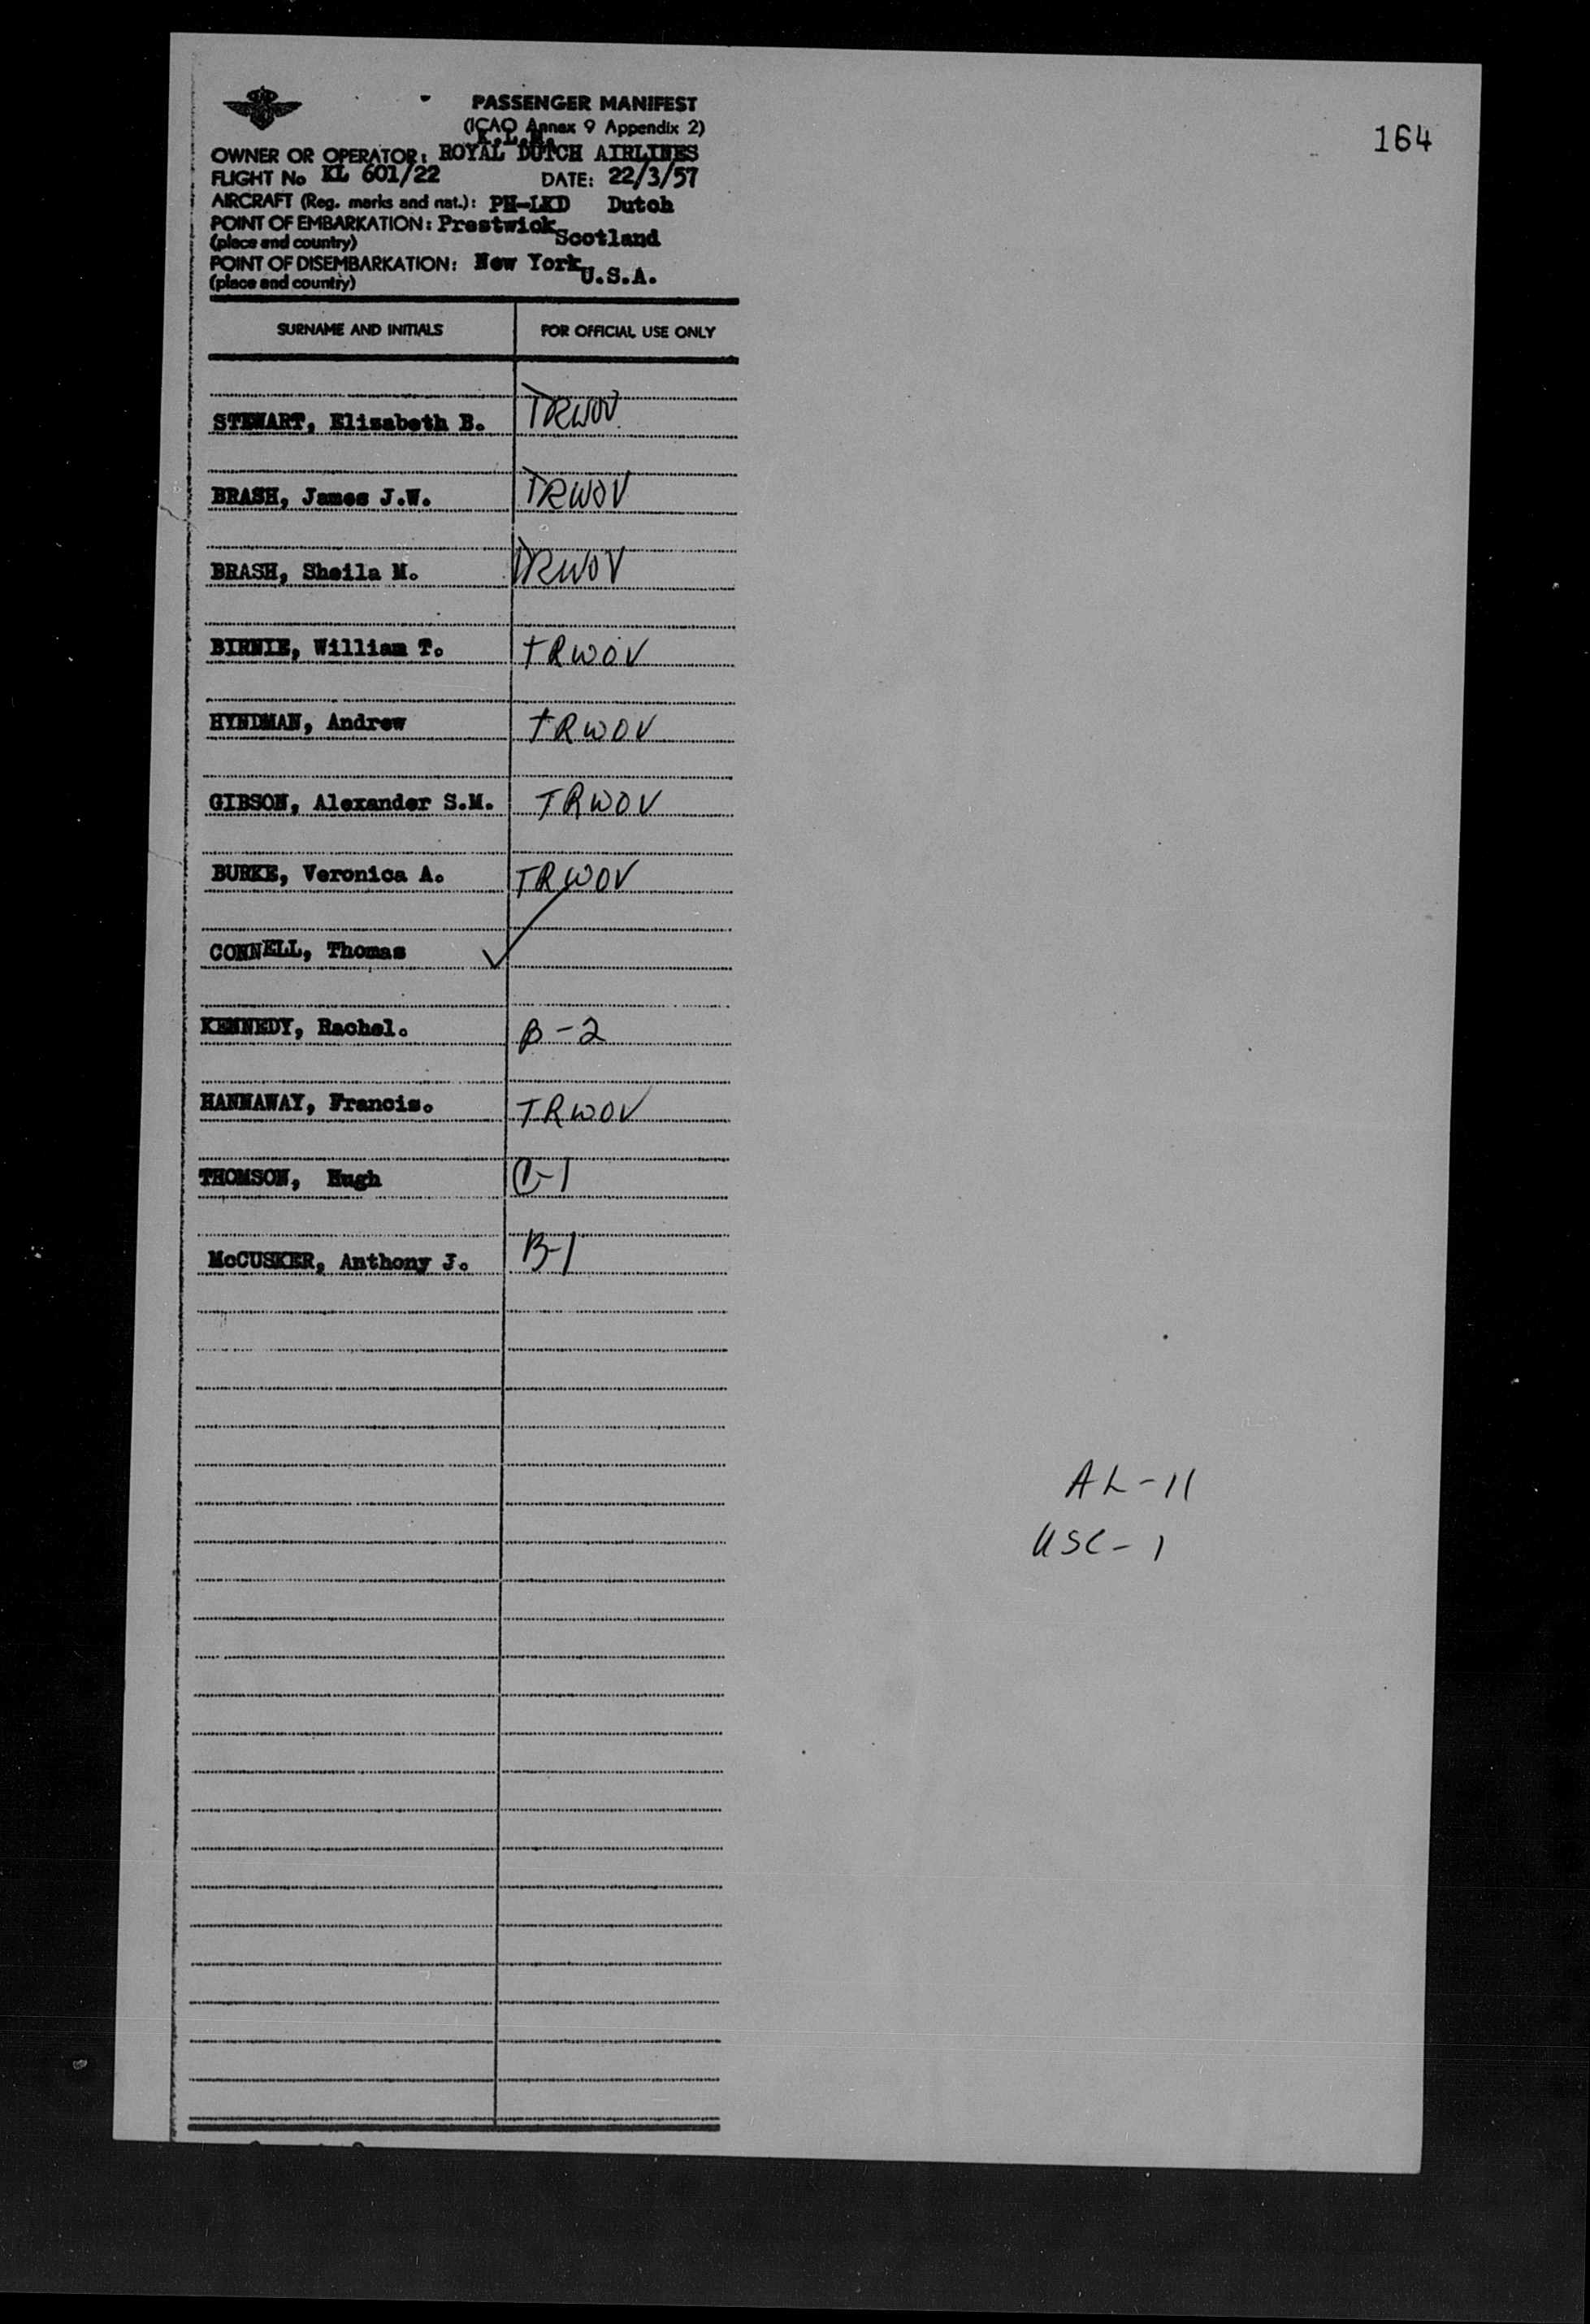 164
PASSENGER MANIFEST
(ICAO Annex 9 Appendix 2)
K.L.M.
OWNER OR OPERATOR: ROYAL DUTCH AIRLINES
FLIGHT No KL 601/22 DATE: 22/3/57
AIRCRAFT (Reg. marks and nat.): PH-LKD Dutch
POINT OF EMBARKATION: Prestwick Scotland
(place and country)
POINT OF DISEMBARKATION: New York U.S.A.
(place and country)
SURNAME AND INITIALS FOR OFFICIAL USE ONLY
STEWART, Elizabeth B. TRWOV
BRASH, James J.W. TRWOV
BRASH, Sheila M. TRWOV
BIRNIE, William T. TRWOV
HYNDMAN, Andrew TRWOV
GIBSON, Alexander S.M. TRWOV
BURKE, Veronica A. TRWOV
CONNELL, Thomas ✓
KENNEDY, Rachel. B-2
HANNAWAY, Francis. TRWOV
THOMSON, Hugh
McCUSKER, Anthony J. B-1
AL-11
USC-1